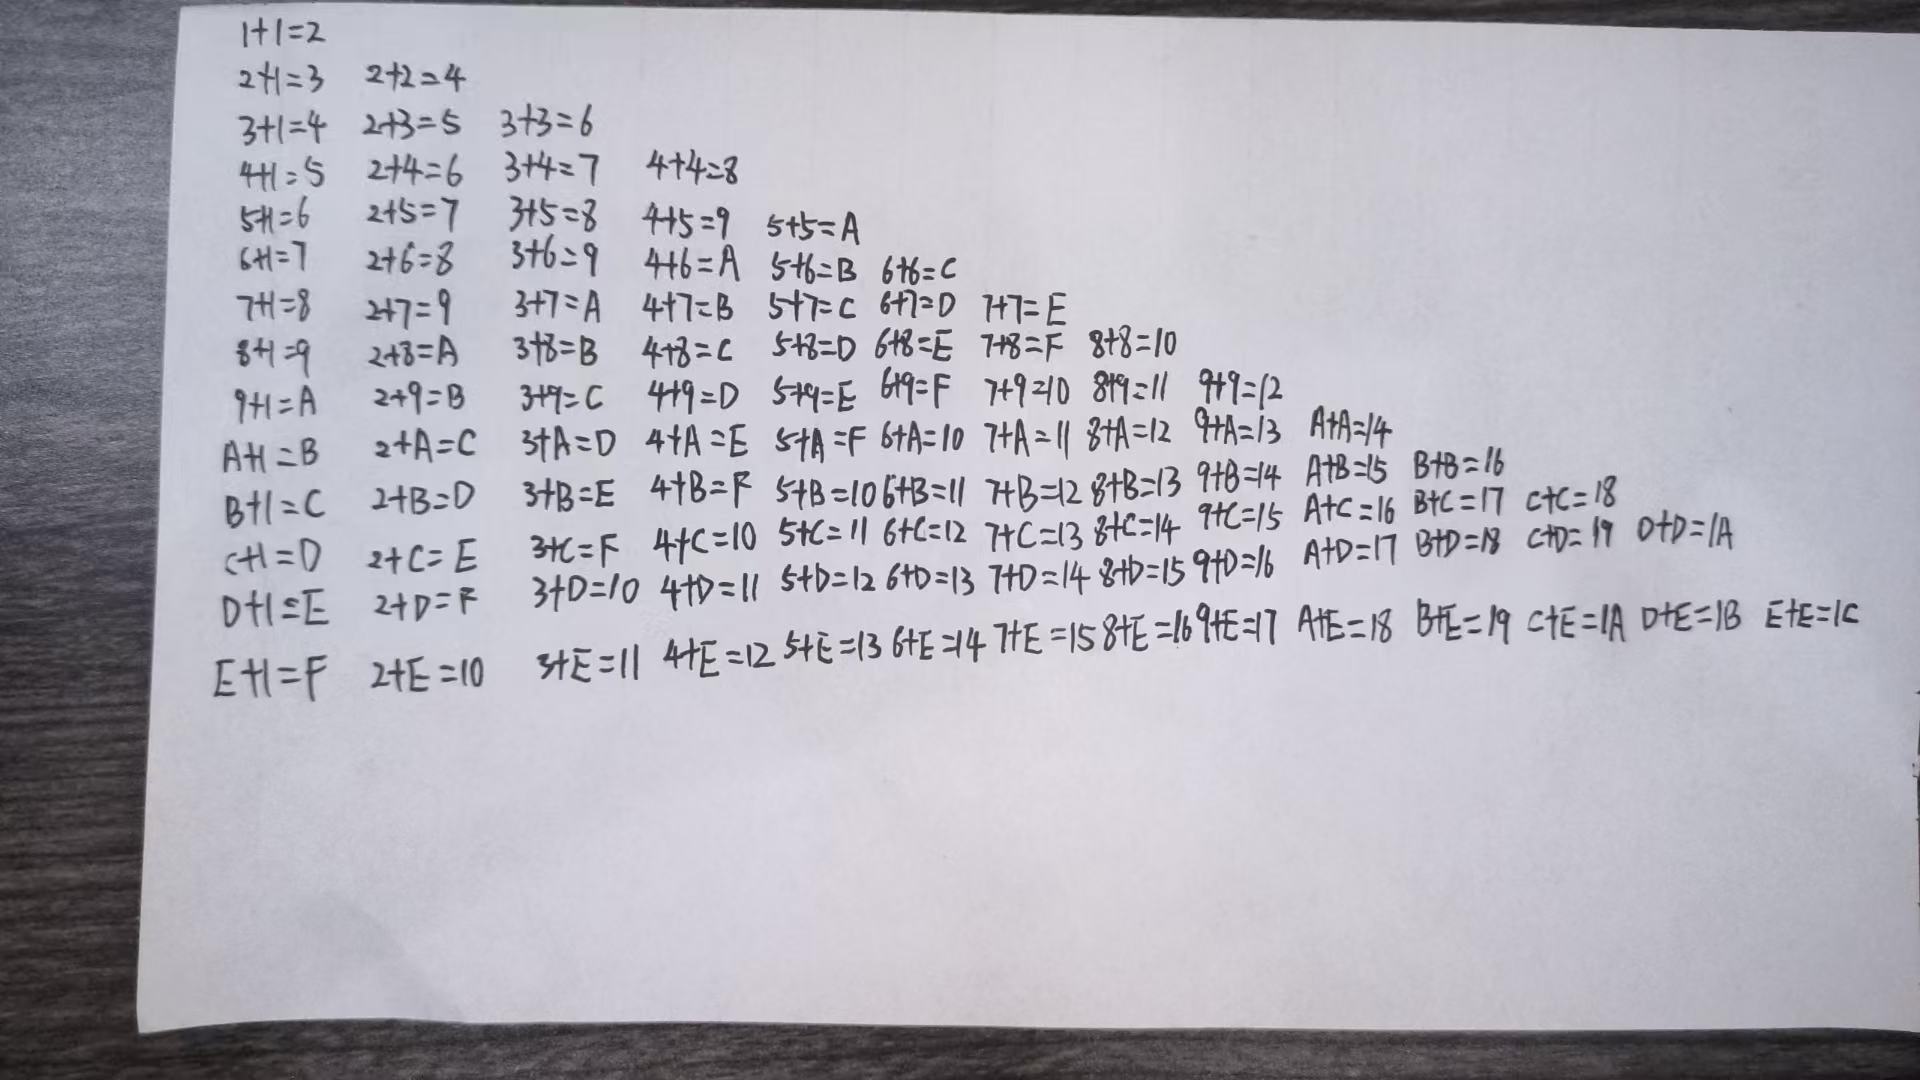 1+1=2
2+1=3 2+2=4
3+1=4 2+3=5 3+3=6
4+1=5 2+4=6 3+4=7 4+4=8
5+1=6 2+5=7 3+5=8 4+5=9 5+5=A
6+1=7 2+6=8 3+6=9 4+6=A 5+6=B 6+6=C
7+1=8 2+7=9 3+7=A 4+7=B 5+7=C 6+7=D 7+7=E
8+1=9 2+8=A 3+8=B 4+8=C 5+8=D 6+8=E 7+8=F 8+8=10
9+1=A 2+9=B 3+9=C 4+9=D 5+9=E 6+9=F 7+9=10 8+9=11 9+9=12
A+1=B 2+A=C 3+A=D 4+A=E 5+A=F 6+A=10 7+A=11 8+A=12 9+A=13 A+A=14
B+1=C 2+B=D 3+B=E 4+B=F 5+B=10 6+B=11 7+B=12 8+B=13 9+B=14 A+B=15 B+B=16
C+1=D 2+C=E 3+C=F 4+C=10 5+C=11 6+C=12 7+C=13 8+C=14 9+C=15 A+C=16 B+C=17 C+C=18
D+1=E 2+D=F 3+D=10 4+D=11 5+D=12 6+D=13 7+D=14 8+D=15 9+D=16 A+D=17 B+D=18 C+D=19 D+D=1A
E+1=F 2+E=10 3+E=11 4+E=12 5+E=13 6+E=14 7+E=15 8+E=16 9+E=17 A+E=18 B+E=19 C+E=1A D+E=1B E+E=1C